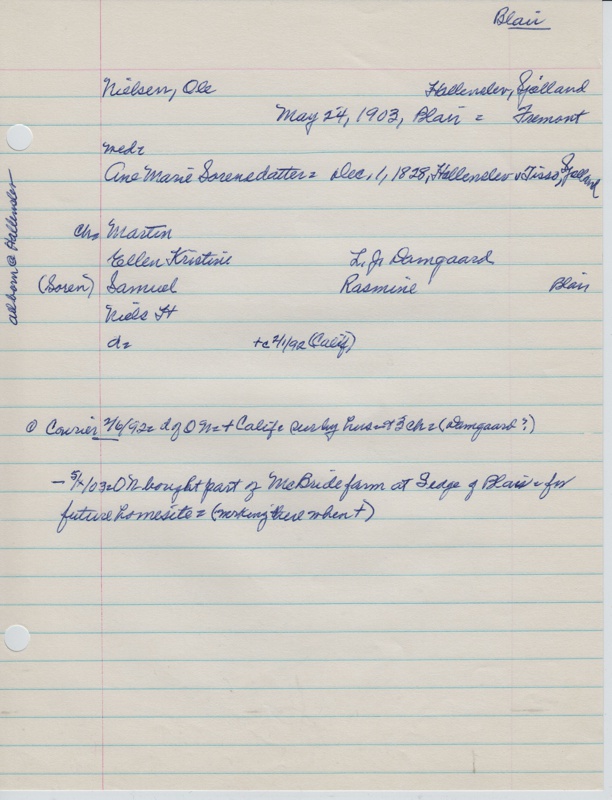 Blair
Nielsen, Ole Hallenslev, Sjælland
May 24, 1903, Blair = Fremont
med=
Ane Marie Sorensdatter = Dec. 1, 1828, Hallenslev v Tisso, Sjælland
all born @ Hallenslev
ch= Martin
Ellen Kristine L. Jr Damgaard
(Soren) Samuel Rasmine Blair
Niels H
d= +c 2/1/92 (Calif)
Courier 2/6/92 = d of ON = + Calif = surv by hus = + 3 ch = (Damgaard?)
- 5/ /03 = ON bought part of McBride farm at edge of Blair = for
future homesite = (working there when +)